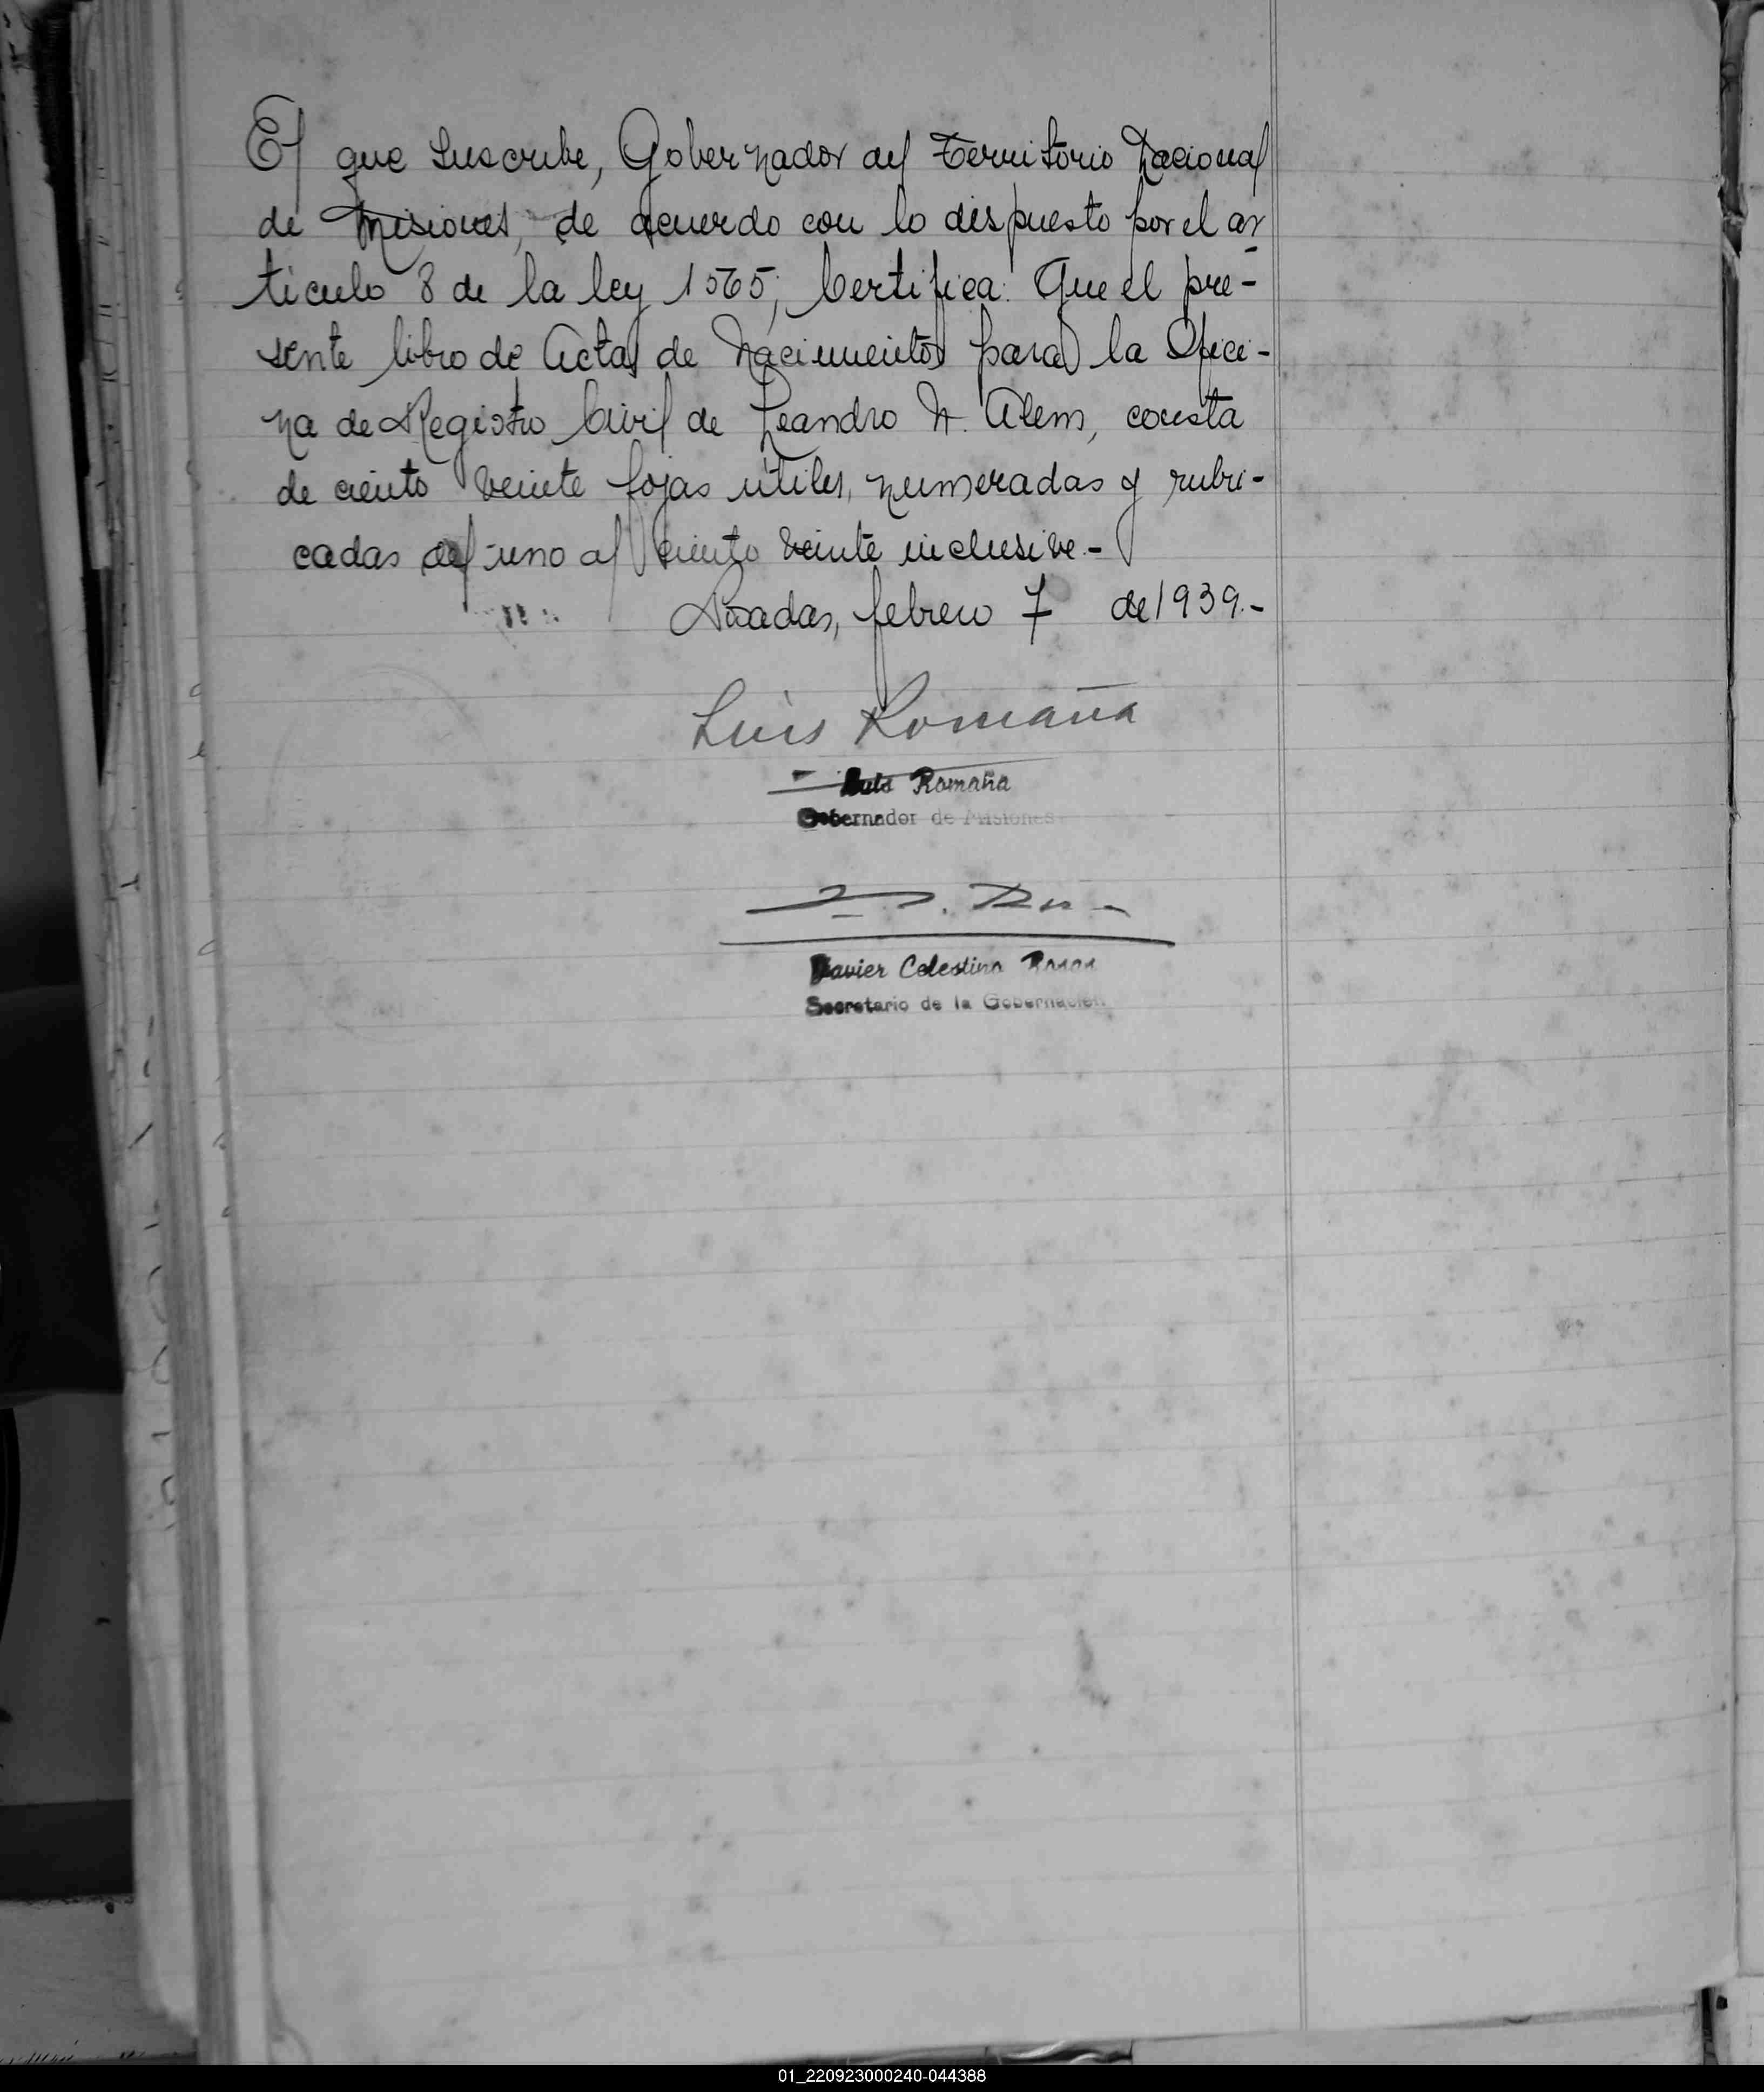 El que suscribe, Gobernador del Territorio Nacional
de Misiones, de acuerdo con lo dispuesto por el ar-
tículo 8 de la ley 1565, Certifica: Que el pre-
sente libro de Actas de Nacimientos para la Ofici-
na de Registro Civil de Leandro N. Alem, consta
de ciento veinte fojas útiles, numeradas y rubri-
cadas del uno al ciento veinte inclusive.-
Posadas, febrero 7 de 1939.-
Luis Romaña
Luis Romaña
Gobernador de Misiones
Javier Celestino Rosas
Secretario de la Gobernación
01_220923000240-044388